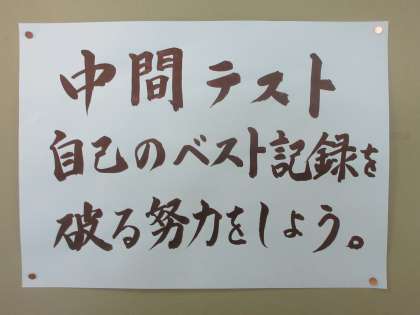 中間テスト
自己のベスト記録を
破る努力をしよう。